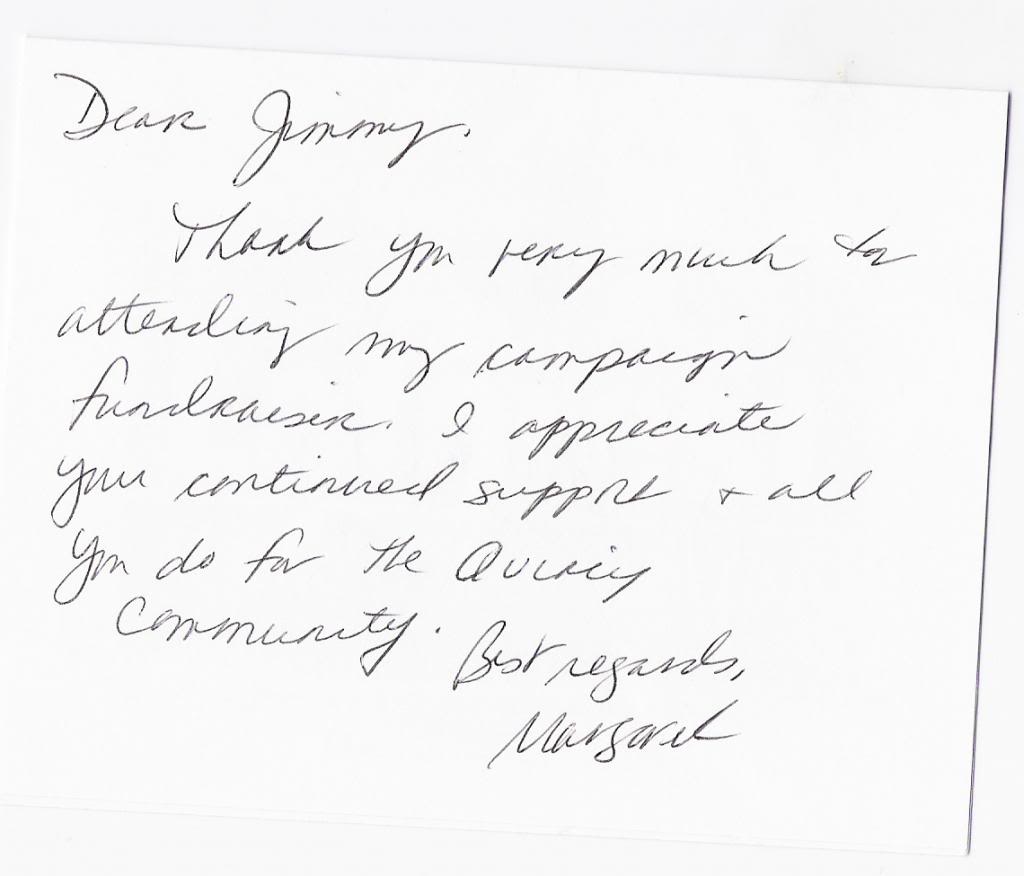 Dear Jimmy,
Thank you very much for
attending my campaign
fundraiser. I appreciate
your continued support + all
you do for the Quincy
Community.
Best regards,
Margaret